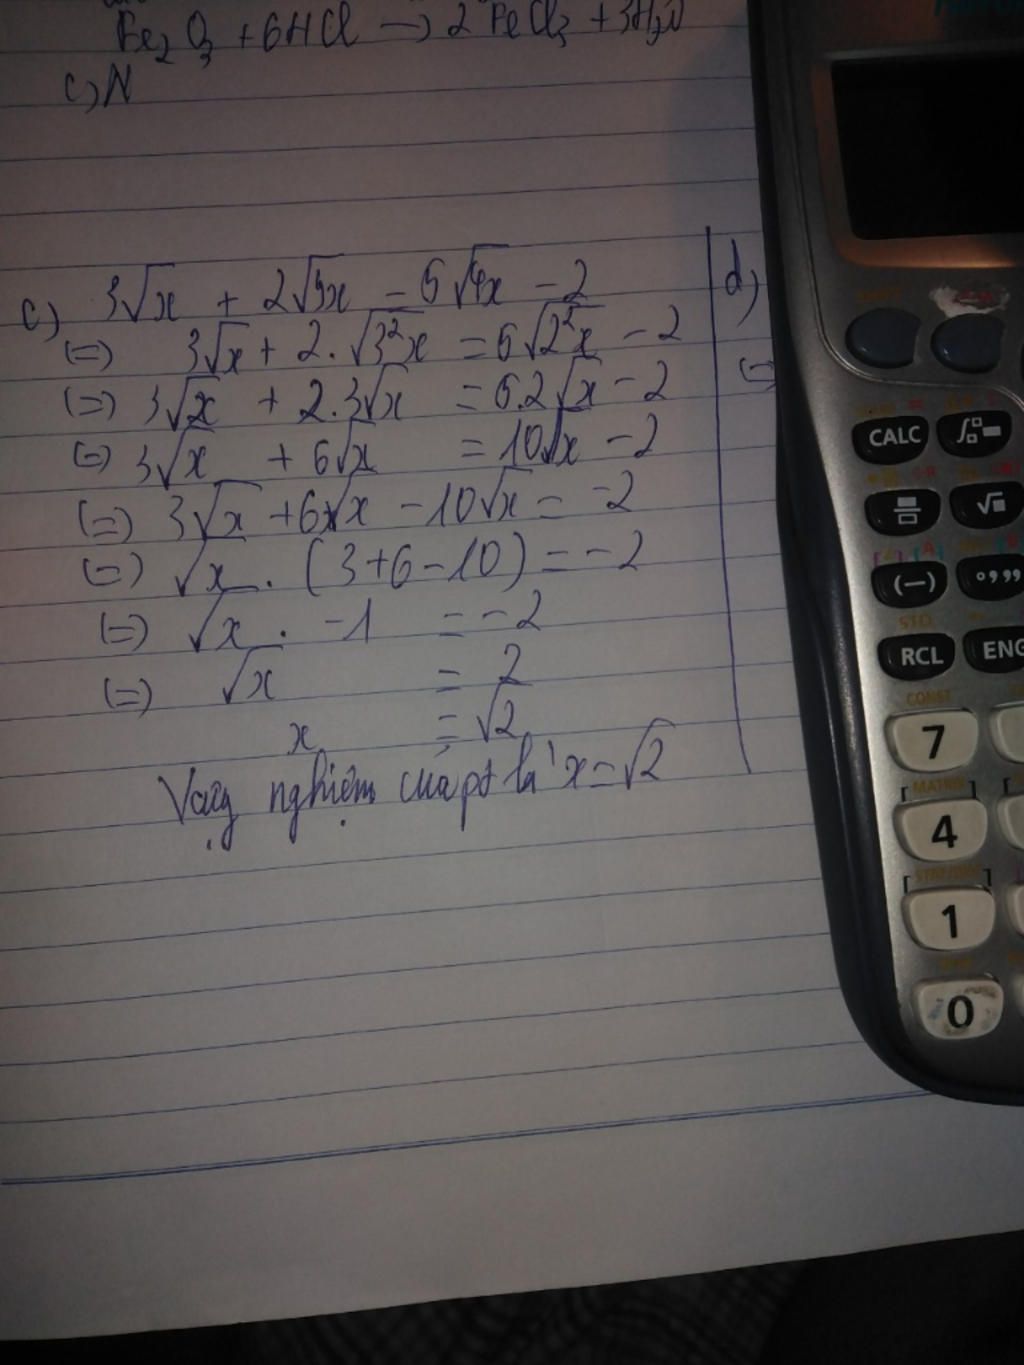 Fe₂O₃ + 6HCl → 2FeCl₃ + 3H₂O
c) N
c) 3√x + 2√9x = 5√4x - 2
(=) 3√x + 2.√3²x = 5√2²x - 2
(=) 3√x + 2.3√x = 5.2√x - 2
(=) 3√x + 6√x = 10√x - 2
(=) 3√x + 6√x - 10√x = -2
(=) √x . (3+6-10) = -2
(=) √x . -1 = -2
(=) √x = 2
x = √2
Vậy nghiệm của pt là x = √2
d)
(=)
CALC
(−)
°,,,
STO
RCL
ENG
CONST
7
MATRIX
4
STAT/DIST
1
0